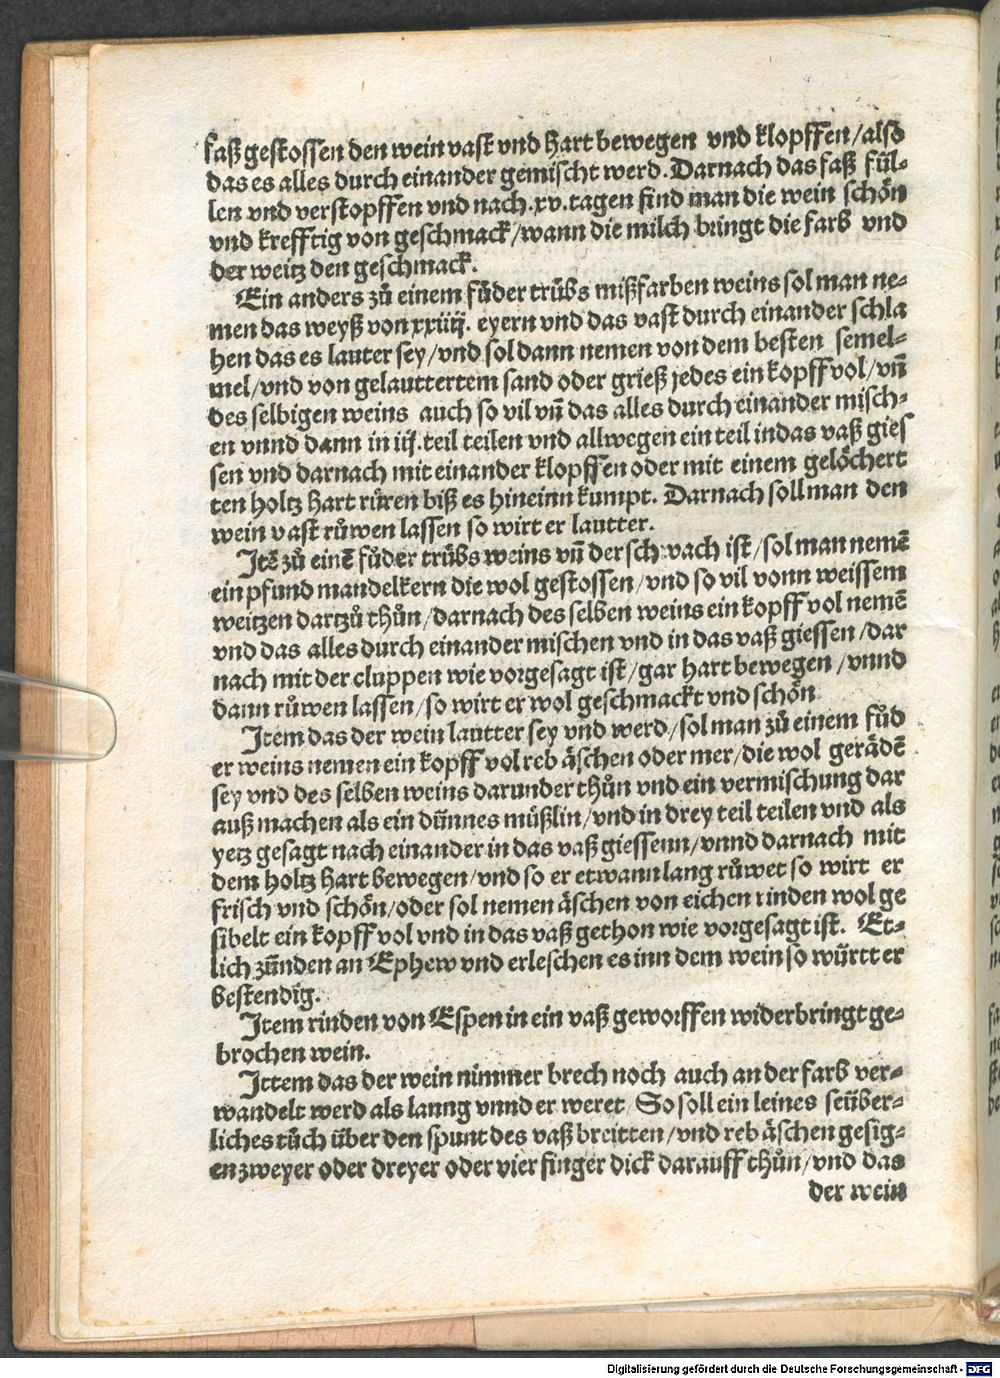 faß gestossen den wein vast vnd hart bewegen vnd klopffen/also
das es alles durch einander gemischt werd. Darnach das faß fül-
len vnd verstopffen vnd nach .xv. tagen find man die wein schön
vnd krefftig von geschmack/wann die milch bringt die farb vnd
der weitz den geschmack.
Ein anders zů einem fůder trůbs mißfarben weins sol man ne-
men das weyß von xxiiij. eyern vnd das vast durch einander schla
hen das es lauter sey/vnd sol dann nemen von dem besten semel-
mel/vnd von gelauttertem sand oder grieß jedes ein kopff vol/vñ
des selbigen weins auch so vil vñ das alles durch einander misch-
en vnnd dann in iij. teil teilen vnd allwegen ein teil in das vaß gies
sen vnd darnach mit einander klopffen oder mit einem gelöchert
ten holtz hart růren biß es hineinn kumpt. Darnach soll man den
wein vast růwen lassen so wirt er lautter.
Jtē zů einē fůder trůbs weins vñ der schwach ist/sol man nemē
ein pfund mandelkern die wol gestossen/vnd so vil vonn weissem
weitzen dartzů thůn/darnach des selben weins ein kopff vol nemē
vnd das alles durch einander mischen vnd in das vaß giessen/dar
nach mit der cluppen wie vorgesagt ist/gar hart bewegen/vnnd
dann růwen lassen/so wirt er wol geschmackt vnd schön
Jtem das der wein lautter sey vnd werd/sol man zů einem fůd
er weins nemen ein kopff vol reb äschen oder mer/die wol gerädē
sey vnd des selben weins darunder thůn vnd ein vermischung dar
auß machen als ein dünnes müßlin/vnd in drey teil teilen vnd als
yetz gesagt nach einander in das vaß giessenn/vnnd darnach mit
dem holtz hart bewegen/vnd so er etwann lang růwet so wirt er
frisch vnd schön/oder sol nemen äschen von eichen rinden wol ge
sibelt ein kopff vol vnd in das vaß gethon wie vorgesagt ist. Et-
lich zünden an Ephew vnd erleschen es inn dem wein so württ er
bestendig.
Jtem rinden von Espen in ein vaß geworffen widerbringt ge-
brochen wein.
Jttem das der wein nimmer brech noch auch an der farb ver-
wandelt werd als lanng vnnd er weret So soll ein leines seüber-
liches tůch über den spunt des vaß breitten/vnd reb äschen gesig-
en zweyer oder dreyer oder vier finger dick darauff thůn/vnd das
der wein
Digitalisierung gefördert durch die Deutsche Forschungsgemeinschaft - DFG